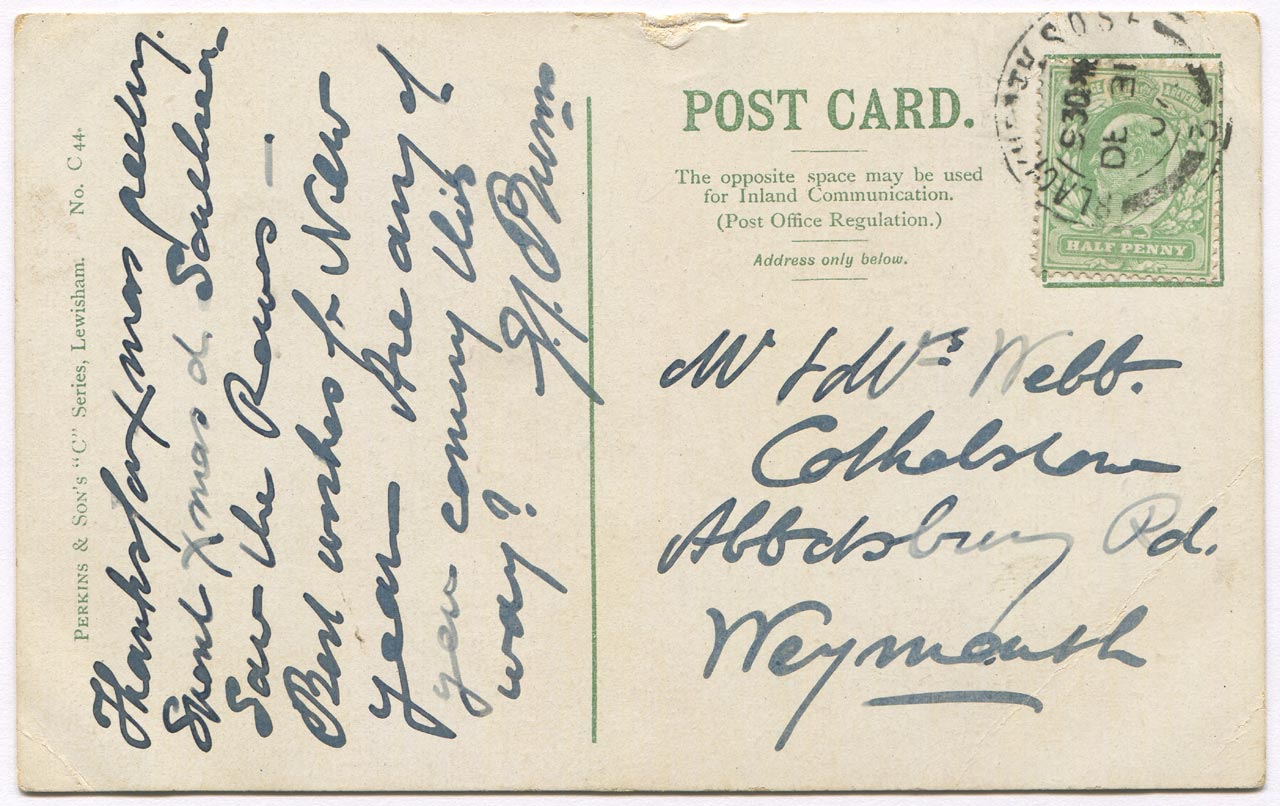 PERKINS & SON'S "C" Series, Lewisham. No. C 44.
Thanks for Xmas greeting.
Spent Xmas at Southsea
Saw the Rowes —
Best wishes for New
year — Are any of
you coming this
way?
POST CARD.
The opposite space may be used
for Inland Communication.
(Post Office Regulation.)
Address only below.
BLACKHEATH S.O. S.E
5 30 PM
DE 30
HALF PENNY
Mr & Mrs Webb.
Cothelstone
Abbotsbury Rd.
Weymouth